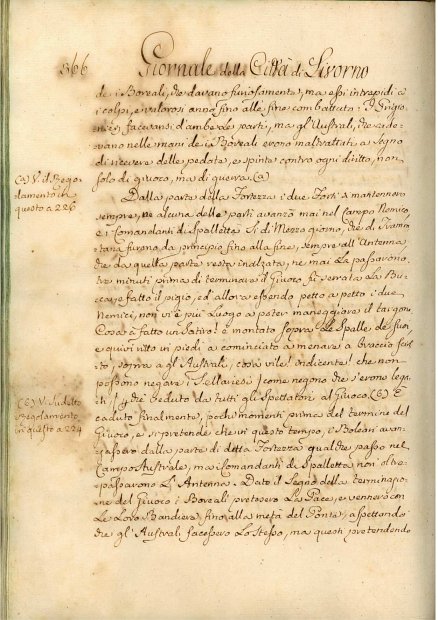 366 Giornale della Città di Livorno
de i Boreali, che davano furiosamente, ma essi intrepidi a
i colpi, e valorosi anno fino alle fine combattuto: I Prigio
nieri facevansi d'ambe le parti, ma gl'Australi, che cade-
vano nelle mani de i Boreali erono maltrattati a segno
di ricevere delle pedate, e spinte contro ogni diritto, non
solo di giuoco, ma di guerra. (a)
(a) V. il Rego-
lamento in
questo a 226
Dalla parte della Fortezza i due Forti si mantennero
sempre, ne alcuna delle parti avanzò mai nel Campo Nemico,
e i Comandanti di Spalletta sì di Mezzo giorno, che di Tramon
tana furono da principio fino alla fine, sempre all'Antenna
che da quella parte resta inalzata, ne mai la passarono.
Tre minuti prima di terminare il Giuoco fu serrata la Buc
ca, e fatto il pigio, ed allora essendo petto a petto i due
Nemici, non vi è più luogo a poter maneggiare il targone.
Cosa à fatto un Satiro! è montato sopra le Spalle de suoi,
e quivi ritto in piedi à cominciato a menare a braccio sciol
to, sopra a gl'Australi, cosa vile! indicente! che non
possono negare i
come negono che s'erono lega
ti,
che veduto da tutti gli Spettatori al Giuoco. (B) E
(B) V. il detto
Regolamento
in questo a 224
caduto finalmente, pochi momenti prima del termine del
Giuoco, e si pretende che in questo tempo, i Boleani avan
zassero dalla parte di detta Fortezza qualche passo nel
Campo Australe, ma i Comandanti di Spalletta non oltre-
passarono L'Antenna. Dato il Segno della terminazio-
ne del Giuoco i Boreali pretesero La Pace, e vennero con
Le Loro Bandiere fino alla metà del Ponte, aspettando
che gl'Australi facessero Lo Stesso, ma questi pretendendo